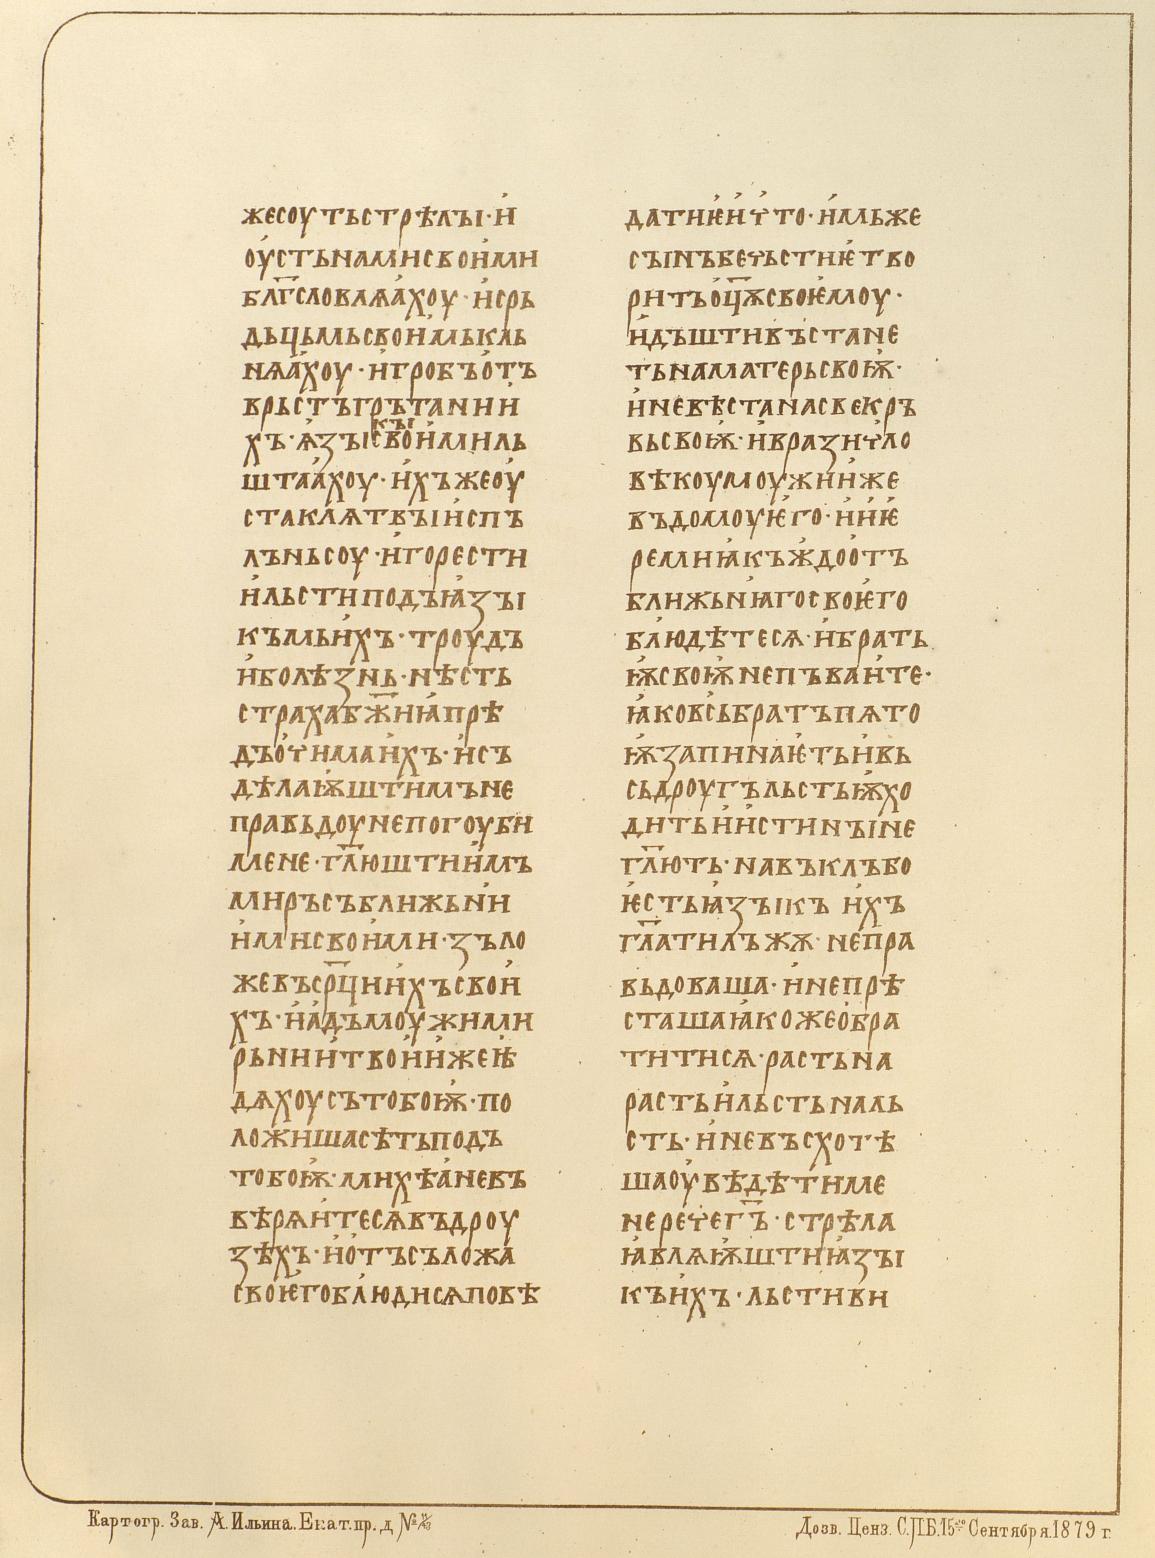 жесоутьстрѣлъı·и҆
оу҆стьнамисвои҆ми
бл҃гсловлѧа҆хоу·и҆срь
дьцьмьсвои҆мькль
нѧа҆хоу·и҆гробъо҆тъ
врьстъгрътании҆
хъ·ѧ҆зъıсвои҆миль
къı
штаа҆хоу·и҆хъжеоу҆
стаклѧтвъıи҆спъ
лъньсоу·и҆горести
и҆льстиподъꙗ҆зъı
къмьи҆хъ·троудъ
и҆болѣзнь·нѣсть
страхаб҃жиꙗ҆прѣ
дъо҆чимаи҆хъ·и҆съ
дѣлаѭ҆штимъне
правьдоунепогоуби
мене·гл҃юштии҆мъ
миръсъближьни
и҆мисвои҆ми·зъло
жевъср҃циихъсвои҆
хъ·и҆а҆дъмоужими
рьнии҆твои҆и҆жеꙗ҆
дѧхоусътобоѭ҆·по
ложишасѣтьподъ
тобоѭ҆·михѣа҆невъ
вѣрѧи҆тесѧвъдроу
зѣхъ·и҆о҆тъсъложа
своѥ҆гоблюдисѧповѣ
датиѥ҆и҆что·и҆мьже
съıнъбечьстиѥ҆тво
ритьо҆ц҃ѫсвоѥ҆моу·
и҆дъштивъстане
тьнаматерьсвоѭ҆·
и҆невѣстанасвекръ
вьсвоѭ҆·и҆вразичло
вѣкоумоужии҆же
въдомоуѥ҆го·и҆и҆ѥ҆
ремиꙗ҆къждоо҆тъ
ближьнꙗ҆госвоѥ҆го
блюдѣтесѧ·и҆брать
ѭ҆своѭ҆непъваи҆те·
ꙗ҆ковсьбратъпѧто
ѭ҆запинаѥ҆тьи҆вь
сьдроугъльстьѭ҆хо
дитьи҆и҆стинъıне
гл҃ють·навъклъбо
ѥ҆стьꙗ҆зъıкъ и҆хъ
гл҃атилъжѫ·непра
вьдоваша·и҆непрѣ
сташаꙗ҆кожео҆бра
титисѧ·растьна
растьи҆льстьналь
сть·и҆невъсхотѣ
шаоу҆вѣдѣтиме
неречег҃ъ·стрѣла
ꙗ҆влѧѭ҆штиꙗ҆зъı
къи҆хъ·льстиви
Картогр. Зав. А. Ильина. Екат. пр. д
Дозв. Ценз. С.П.Б. 15го Сентября 1879 г.